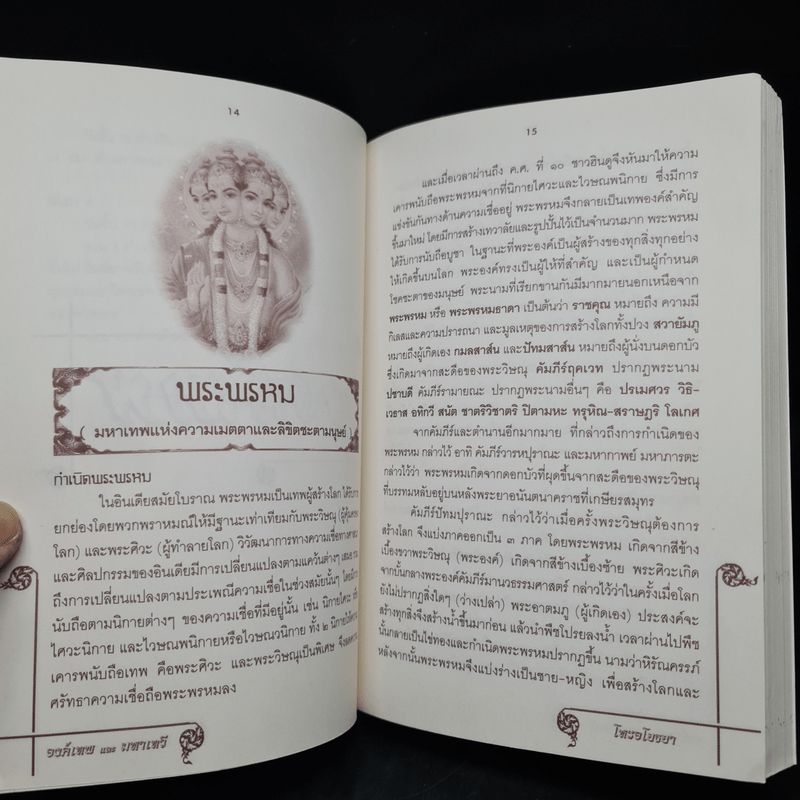 14
พระพรหม
( มหาเทพแห่งความเมตตาและลิขิตชะตามนุษย์ )
กำเนิดพระพรหม
ในอินเดียสมัยโบราณ พระพรหมเป็นเทพผู้สร้างโลก ได้รับการ
ยกย่องโดยพวกพราหมณ์ให้มีฐานะเท่าเทียมกับพระวิษณุ (ผู้คุ้มครอง
โลก) และพระศิวะ (ผู้ทำลายโลก) วิวัฒนาการทางความเชื่อทางศาสนา
และศิลปกรรมของอินเดียมีการเปลี่ยนแปลงตามแคว้นต่างๆ เสมอ
ถึงการเปลี่ยนแปลงตามประเพณีความเชื่อในช่วงสมัยนั้นๆ โดยมีการ
นับถือตามนิกายต่างๆ ของความเชื่อที่มีอยู่นั้น เช่น นิกายไศวะ หรือ
ไศวะนิกาย และไวษณพนิกายหรือไวษณวนิกาย ทั้ง ๒ นิกายให้ความ
เคารพนับถือเทพ คือพระศิวะ และพระวิษณุเป็นพิเศษ จึงลดความ
ศรัทธาความเชื่อถือพระพรหมลง
องค์เทพ และ มหาเทวี
15
และเมื่อเวลาผ่านถึง ค.ศ. ที่ ๑๐ ชาวฮินดูจึงหันมาให้ความ
เคารพนับถือพระพรหมจากที่นิกายไศวะและไวษณพนิกาย ซึ่งมีการ
แข่งขันกันทางด้านความเชื่ออยู่ พระพรหมจึงกลายเป็นเทพองค์สำคัญ
ขึ้นมาใหม่ โดยมีการสร้างเทวาลัยและรูปปั้นไว้เป็นจำนวนมาก พระพรหม
ได้รับการนับถือบูชา ในฐานะที่พระองค์เป็นผู้สร้างของทุกสิ่งทุกอย่าง
ให้เกิดขึ้นบนโลก พระองค์ทรงเป็นผู้ให้ที่สำคัญ และเป็นผู้กำหนด
โชคชะตาของมนุษย์ พระนามที่เรียกขานกันมีมากมายนอกเหนือจาก
พระพรหม หรือ พระพรหมธาดา เป็นต้นว่า ราชคุณ หมายถึง ความมี
กิเลสและความปรารถนา และมูลเหตุของการสร้างโลกทั้งปวง สวายัมภู
หมายถึงผู้เกิดเอง กมลสาส์น และปัทมสาส์น หมายถึงผู้นั่งบนดอกบัว
ซึ่งเกิดมาจากสะดือของพระวิษณุ คัมภีร์ฤคเวท ปรากฏพระนาม
ปชาบดี คัมภีร์รามายณะ ปรากฏพระนามอื่นๆ คือ ปรเมศวร วิธิ-
เวธาส อทิกวี สนัต ชาตริวิชาตริ ปิตามหะ ทรุหิณ-สราษฎริ โลเกศ
จากคัมภีร์และตำนานอีกมากมาย ที่กล่าวถึงการกำเนิดของ
พระพรหม กล่าวไว้ อาทิ คัมภีร์วารหปุราณะ และมหากาพย์ มหาภารตะ
กล่าวไว้ว่า พระพรหมเกิดจากดอกบัวที่ผุดขึ้นจากสะดือของพระวิษณุ
ที่บรรทมหลับอยู่บนหลังพระยาอนันตนาคราชที่เกษียรสมุทร
คัมภีร์ปัทมปุราณะ กล่าวไว้ว่าเมื่อครั้งพระวิษณุต้องการ
สร้างโลก จึงแบ่งภาคออกเป็น ๓ ภาค โดยพระพรหม เกิดจากสีข้าง
เบื้องขวาพระวิษณุ (พระองค์) เกิดจากสีข้างเบื้องซ้าย พระศิวะเกิด
จากบั้นกลางพระองค์คัมภีร์มานวธรรมศาสตร์ กล่าวไว้ว่าในครั้งเมื่อโลก
ยังไม่ปรากฏสิ่งใดๆ (ว่างเปล่า) พระอาตมภู (ผู้เกิดเอง) ประสงค์จะ
สร้างทุกสิ่งจึงสร้างน้ำขึ้นมาก่อน แล้วนำพืชโปรยลงน้ำ เวลาผ่านไปพืช
นั้นกลายเป็นไข่ทองและกำเนิดพระพรหมปรากฏขึ้น นามว่าหิรัณครรภ์
หลังจากนั้นพระพรหมจึงแบ่งร่างเป็นชาย-หญิง เพื่อสร้างโลกและ
โหรอโยธยา